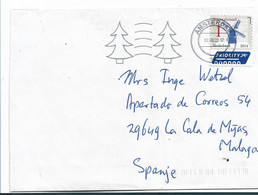 AMSTERDAM
1
Nederland 2014
PRIORITY
Mrs Inge Wetzel
Apartado de Correos 54
29649 La Cala de Mijas
Malaga
Spanje